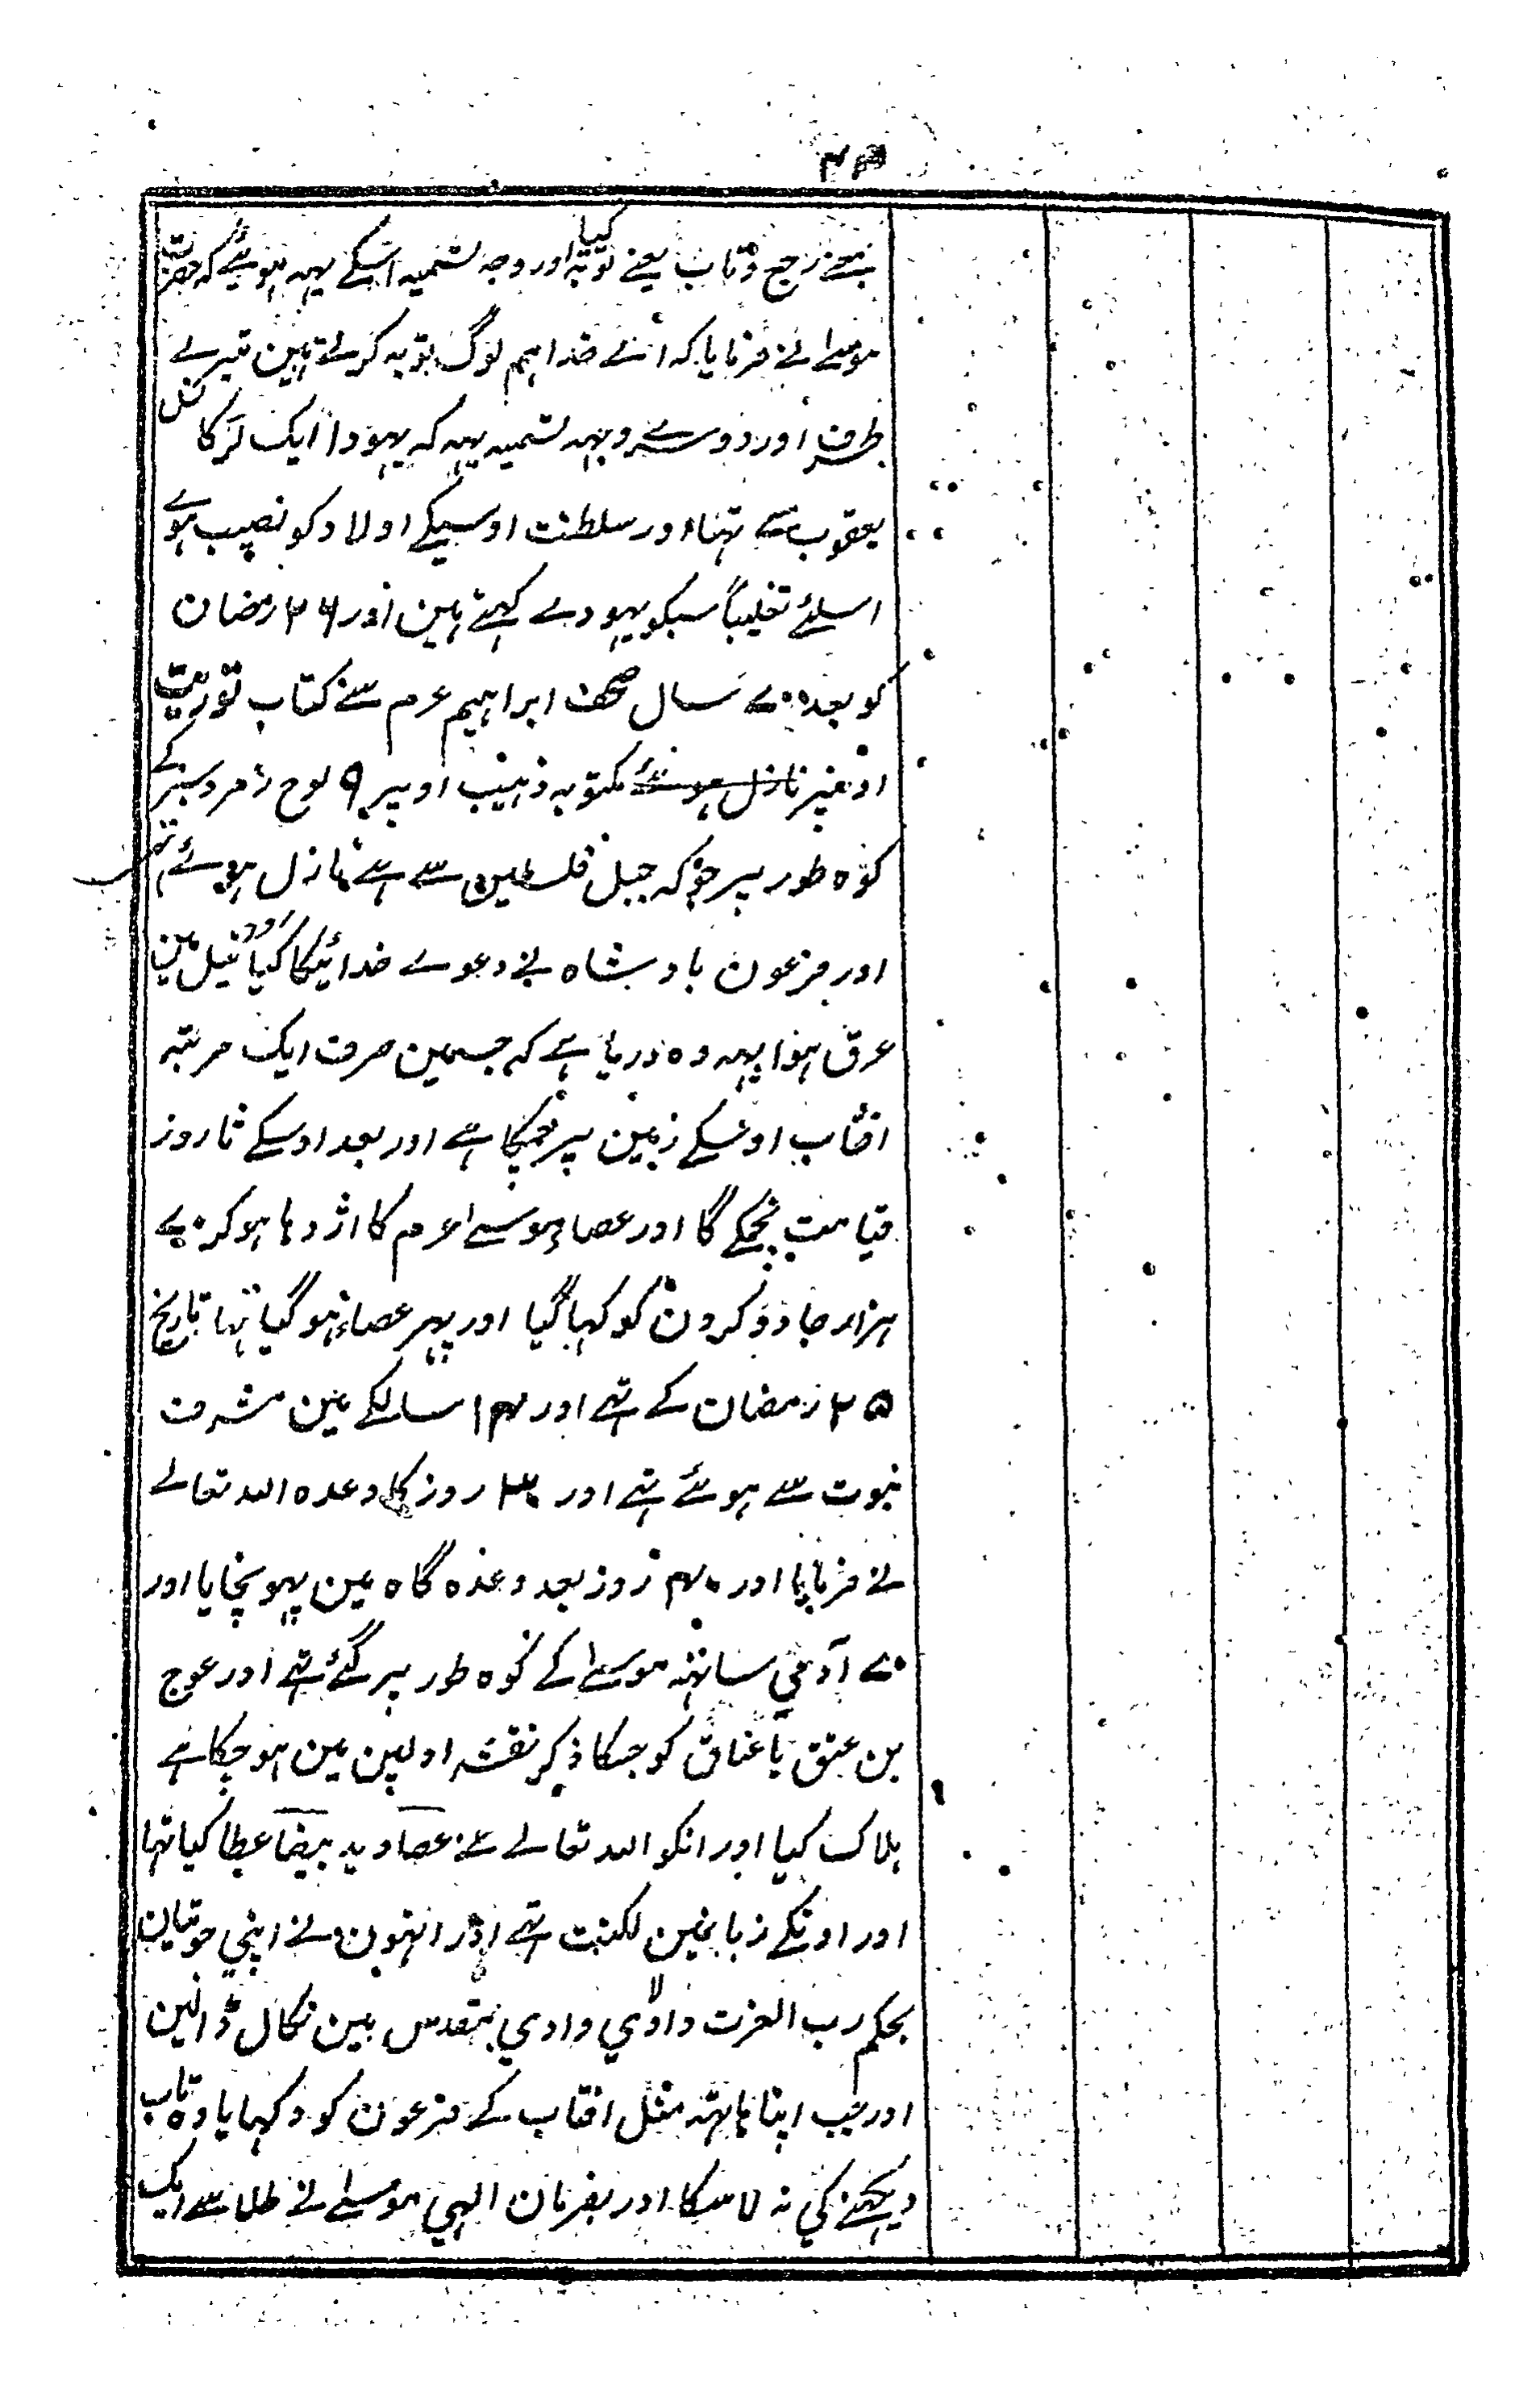 ۴۳
بمعنے رجع و تاب یعنے توبہ کیا اور وجہ تسمیہ اسکے یہہ ہوئے کہ حضرت
موسے نے فرمایا کہ اے خدا ہم لوگ توبہ کرتے ہین تیرے
طرف اور دوسرے وجہہ تسمیہ یہہ کہ یہودا ایک لڑکا نسل
یعقوب سے تہا اور سلطنت اوسیکے اولاد کو نصیب ہوے
اسلئے تغلیباً سبکو یہودے کہتے ہین اور ۲۶ رمضان
کو بعد ۷۰۰ سال صحف ابراہیم عرم سے کتاب توریت
اونپر نازل ہوئے مکتوبہ ذہیب اوپر ۹ لوح زمرد سبز کے
کوہ طور پر جو کہ جبل فلسطین سے ہے نازل ہوئے تہے
اور فرعون بادشاہ نے دعوے خدائیکا کیا اور نیل مین
غرق ہوا یہہ وہ دریا ہے کہ جسمین صرف ایک مرتبہ
افتاب اوسکے زمین پر چمکا ہے اور بعد اوسکے تا روز
قیامت نچمکے گا اور عصاء موسے عرم کا اژدہا ہو کر ۷۰
ہزار جادوگرون کو کہا گیا اور پہر عصاء ہو گیا تہا تاریخ
۲۵ رمضان کے تہے اور ۱۴ سالکے مین مشرف
نبوت سے ہوئے تہے اور ۳۰ روز کا وعدہ اللہ تعالے
نے فرمایا اور ۴۰ روز بعد وعدہ گاہ مین پہونچایا اور
۷۰ آدمي ساتہہ موسے کے کوہ طور پر گئے تہے اور عوج
بن عنق یا عناق کو جسکا ذکر نقشہ اولین مین ہو چکا ہے
ہلاک کیا اور انکو اللہ تعالے نے عصا و ید بیضا عطا کیا تہا
اور اونکے زبانمین لکنت تہے اور انہون نے اپنی جوتیان
بحکم رب العزت وادي مقدس مین نکال ڈالین
اور جب اپنا ہاتہہ مثل افتاب کے فرعون کو دکہایا وہ تاب
دیکہنے کي نہ لا سکا اور بفرمان الہي موسے نے طلا سے ایک